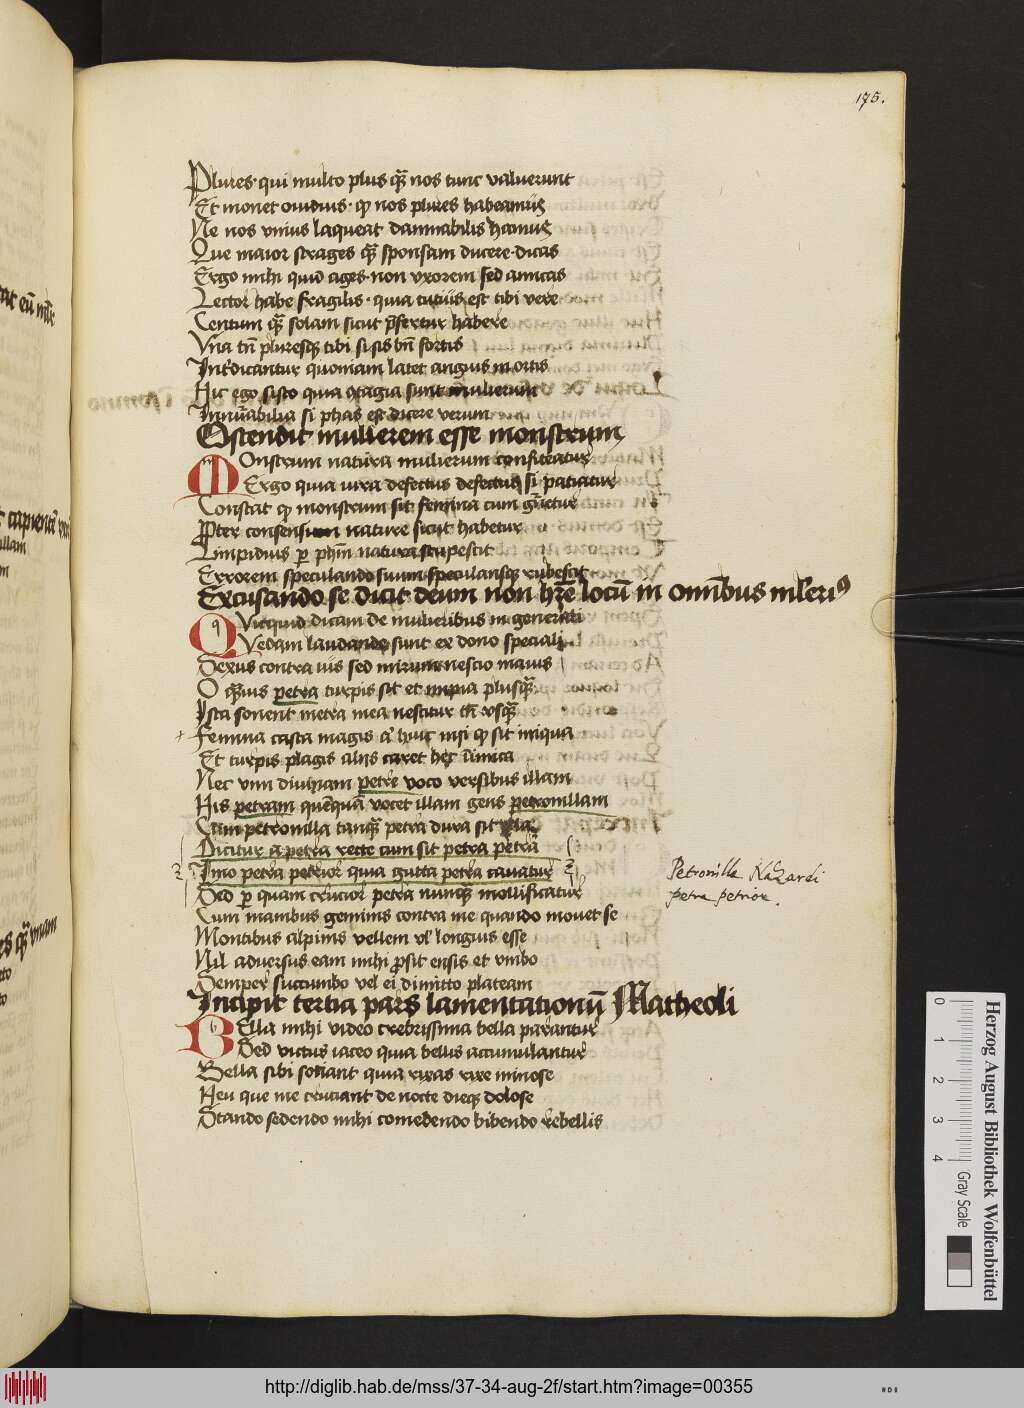 175.
Plures qui multo plus qȝ nos tunc valuerunt
Et monet ouidius qͥ nos plures habeamus
Ne nos vnius laqueat damnabilis hamus
Que maior strages qȝ sponsam ducere dicas
Ergo mihi quid ages non vxorem sed amicas
Lector habe fragilis quia tucius est tibi vere
Centum qȝ solam sicut p̄fertur habere
Vna tn̄ pluresqȝ tibi si sis bn̄ fortis
Int̉dicantur quoniam latet anguis mortis
Hic ego sisto quia ꝯtagia sunt mulierum
Innu̅abilia si phas est dicere verum
Ostendit mulierem esse monstrum
MOnstrum natura mulierum confiteatur
Ergo quia iura defectus defectuȝ si patiatur
Constat qͥ monstrum sit femina cum gn̅etur
P̄ter consensum nature sicut habetur
Limpidius per ph̅m natura stupescit
Errorem speculando suum speculansqȝ rubescit
Excusando se dicit deum non hr̅e locu̅ in omi̅bus ml̅erib9
QVicquid dicam de mulieribus in generali
Quedam laudande sunt ex dono speciali
Sexus contra viis sed mirum nescio mauis
O qȝuis petra turpis sit et impia plusqȝ
Ista sonent metra mea nescitur tn̄ vsqȝ
Femina casta magis a̅ huic nisi qͥ sit iniqua
Et turpis plagis aliis caret hec inimica
Nec vim diuinam petre voco versibus illam
His petram quēquā vocet illam gens petronillam
Cum petronilla tanqȝ petra dura sit illa
Dicitur a petra recte cum sit petra petra
Imo petra petrior quia gutta petra cauatur
Sed per quam crucior petra nunqȝ mollificatur
Cum manibus geminis contra me quando mouet se
Montibus alpinis vellem vl̉ longius esse
Nil aduersus eam mihi prosit ensis et vmbo
Semper succumbo vel ei dimitto plateam
Petronilla
petra petrior.
Incipit tertia pars lamentationu̅ Matheoli
BElla mihi video creberrissima bella parantur
Sed victus iaceo quia bellis accumulantur
Bella sibi sociant quia rixas rixe minose
Heu que me cruciant de nocte dieqȝ dolose
Stando sedendo mihi comedendo bibendo rebellis
Herzog August Bibliothek Wolfenbüttel
Gray Scale
0 1 2 3 4
http://diglib.hab.de/mss/37-34-aug-2f/start.htm?image=00355